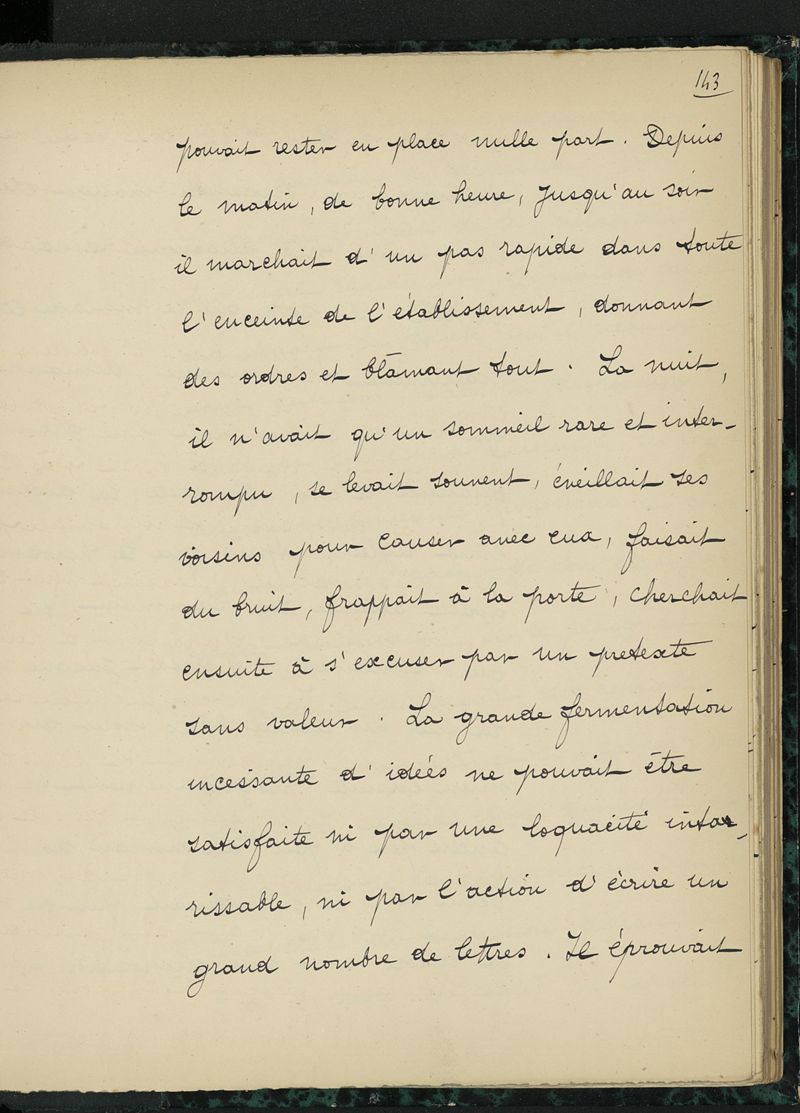 143
pouvait rester en place nulle part. Depuis
le matin, de bonne heure, jusqu'au soir
il marchait d'un pas rapide dans toute
l'enceinte de l'établissement, donnant
des ordres et blâmant tout. La nuit,
il n'avait qu'un sommeil rare et inter-
rompu, se levait souvent, éveillait ses
voisins pour causer avec eux, faisait
du bruit, frappait à la porte, cherchait
ensuite à s'excuser par un pretexte
sans valeur. La grande fermentation
incessante d'idées ne pouvait être
satisfaite ni par une loquacité intar-
rissable, ni par l'action d'écrire un
grand nombre de lettres. Il éprouvait